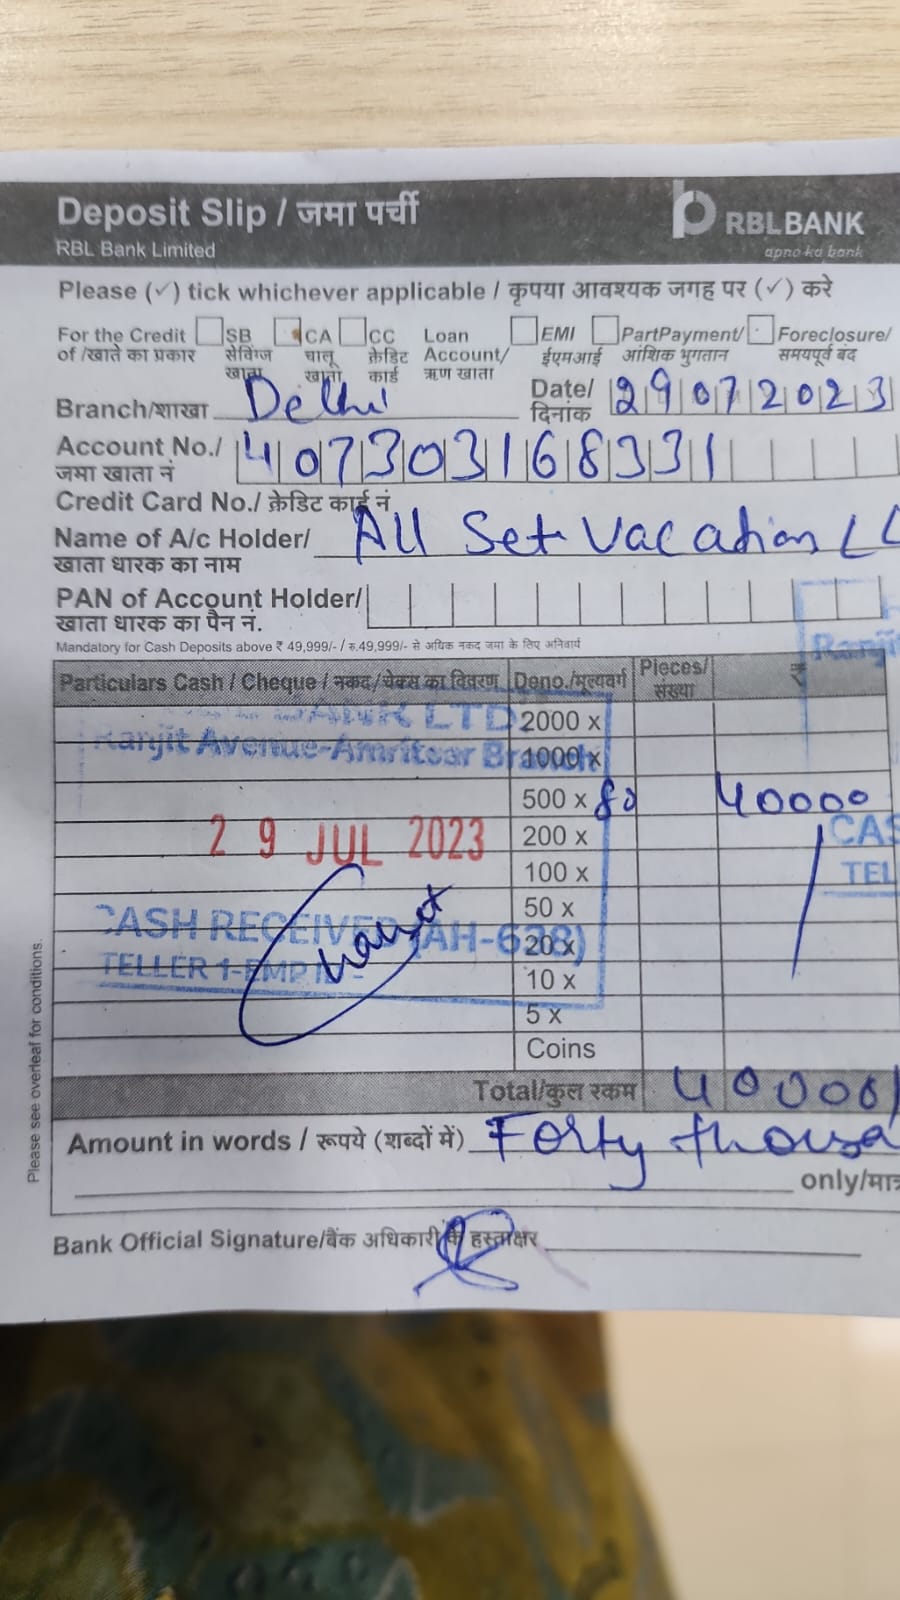 Deposit Slip / जमा पर्ची
RBL Bank Limited
RBL BANK
apno ka bank
Please (✓) tick whichever applicable / कृपया आवश्यक जगह पर (✓) करे
For the Credit SB CA CC Loan EMI PartPayment/ Foreclosure/
of /खाते का प्रकार सेविंग्ज चालू क्रेडिट Account/ ईएमआई आंशिक भुगतान समयपूर्व बंद
खाता खाता कार्ड ऋण खाता
Branch/शाखा Delhi Date/ 29072023
दिनांक
Account No./ 407303168331
जमा खाता नं
Credit Card No./ क्रेडिट कार्ड नं
Name of A/c Holder/ All Set Vacation
खाता धारक का नाम
PAN of Account Holder/
खाता धारक का पैन नं.
Mandatory for Cash Deposits above ₹ 49,999/- / रु.49,999/- से अधिक नकद जमा के लिए अनिवार्य
Particulars Cash / Cheque / नकद/चेक्स का विवरण Deno./मूल्यवर्ग Pieces/ ₹
संख्या
BANK LTD 2000 x
Ranjit Avenue-Amritsar Branch 1000 x
500 x 80 40000
29 JUL 2023 200 x
100 x
50 x
CASH RECEIVED (AH-628) 20 x
TELLER 1-EMP 10 x
5 x
Coins
Total/कुल रकम 40000/
Amount in words / रूपये (शब्दों में) Forty thousa
only/मात्र
Bank Official Signature/बैंक अधिकारी के हस्ताक्षर
Please see overleaf for conditions.